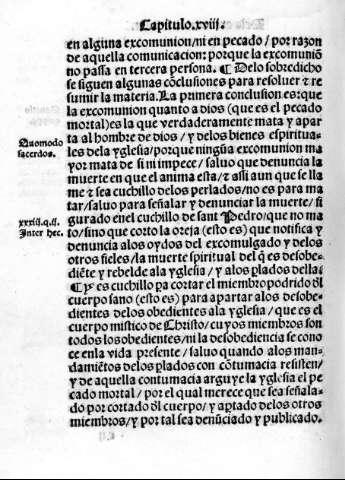 Capitulo.xviij.
en alguna excomunion/ni en pecado/por razon
de aquella comunicacion: porque la excomuniõ
no passa en tercera persona. ¶ Delo sobredicho
se siguen algunas cõclusiones para resoluer ⁊ re
sumir la materia. La primera conclusion es: que
la excomunion quanto a dios (que es el pecado
mortal) es la que verdaderamente mata y apar
ta al hombre de dios/ y delos bienes espiritua-
les dela yglesia/porque ningũa excomunion ma
yor mata de si ni impece/saluo que denuncia la
muerte en que el anima esta/⁊ assi aun que se lla
me ⁊ sea cuchillo delos perlados/no es para ma
tar/saluo para señalar y denunciar la muerte/ fi
gurado enel cuchillo de sant Pedro/que no ma
to/sino que corto la oreja (esto es) que notifica y
denuncia alos oydos del excomulgado y delos
otros fieles/la muerte spiritual del q̃ es desobe-
diẽte y rebelde ala yglesia/ y alos plados della
¶ Y es cuchillo pa cortar el miembro podrido dl̃
cuerpo sano (esto es) para apartar alos desobe-
dientes delos obedientes ala yglesia/que es el
cuerpo mistico de Christo/cuyos miembros son
todos los obedientes/ni la desobediencia se cono
ce enla vida presente/saluo quando alos man-
damiẽtos delos plados con cõtumacia resisten/
y de aquella contumacia arguye la yglesia el pe
cado mortal/por el qual merece que sea señala-
do por cortado dl̃ cuerpo/y aptado delos otros
miembros/y por tal sea denũciado y publicado.
Quomodo
sacerdos.
xxxiij.q.ij.
Inter hec.